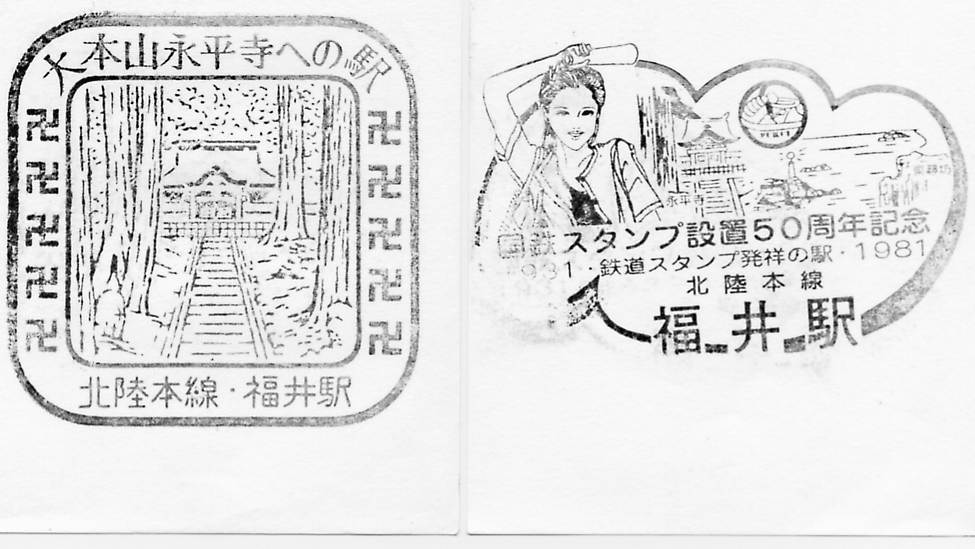 大本山永平寺への駅
卍 卍
卍 卍
卍 卍
卍 卍
卍 卍
北陸本線・福井駅
永平寺
東尋坊
国鉄スタンプ設置50周年記念
1931・鉄道スタンプ発祥の駅・1981
北陸本線
福井駅